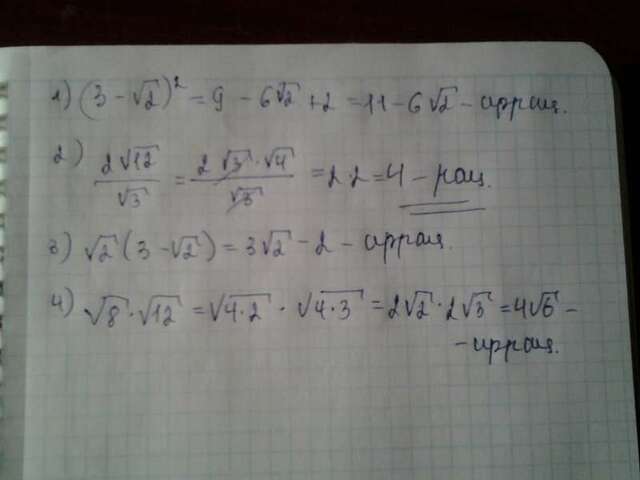 1) (3 - √2)² = 9 - 6√2 + 2 = 11 - 6√2 - иррац.
2) 2√12/√3 = 2√3·√4/√3 = 2·2 = 4 - рац.
3) √2(3 - √2) = 3√2 - 2 - иррац.
4) √8·√12 = √4·2 · √4·3 = 2√2·2√3 = 4√6 -
- иррац.